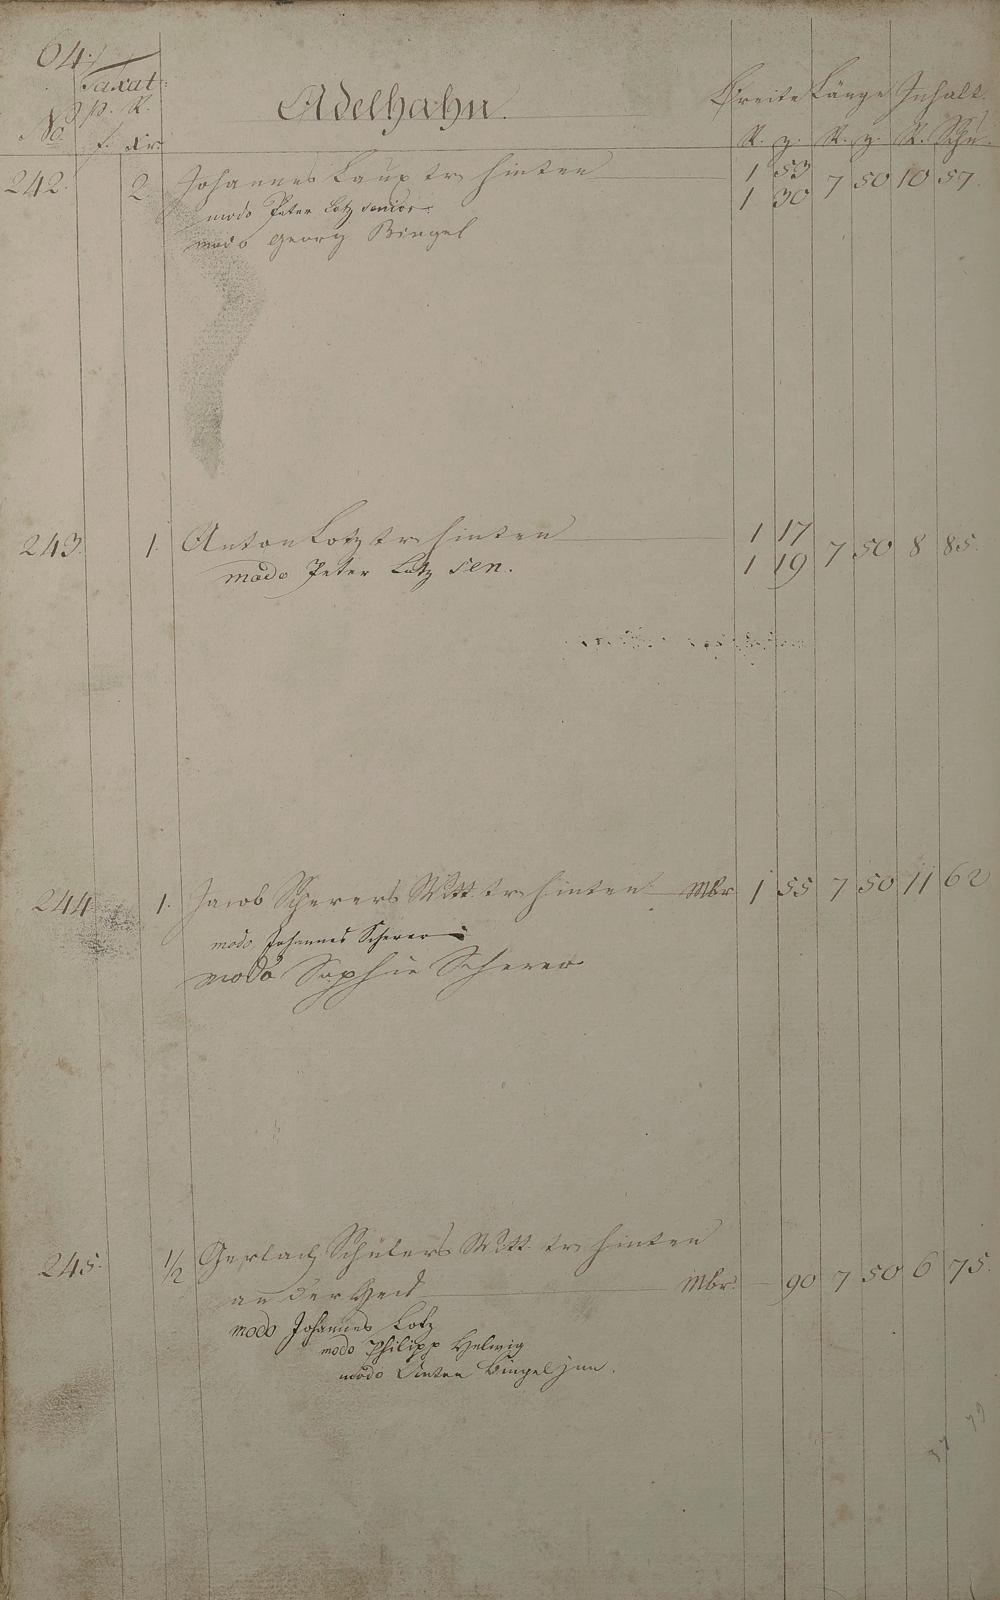 64.
Taxat.
No p. R. Adelhahn. Breite Länge Inhalt.
f. Xr. R. z. R. z. R. Schu.
242. 2. Johannes Laup tr hinten 1 53 7 50 10 57.
1 30
modo Peter Lotz senior.
modo Georg Bingel
243. 1. Anton Lotz tr hinten 1 17 7 50 8 85.
1 19
modo Peter Lotz Sen.
244. 1. Jacob Scherers Witt. tr hinten Mbr. 1 55 7 50 11 62
modo Johannes Scherer
modo Sophie Scherer
245. 1/2 Gerlach Schülers Witt. tr hinten
an der Heck Mbr. — 90 7 50 6 75.
modo Johannes Lotz
modo Philipp Helwig
modo Anton Bingel jun.